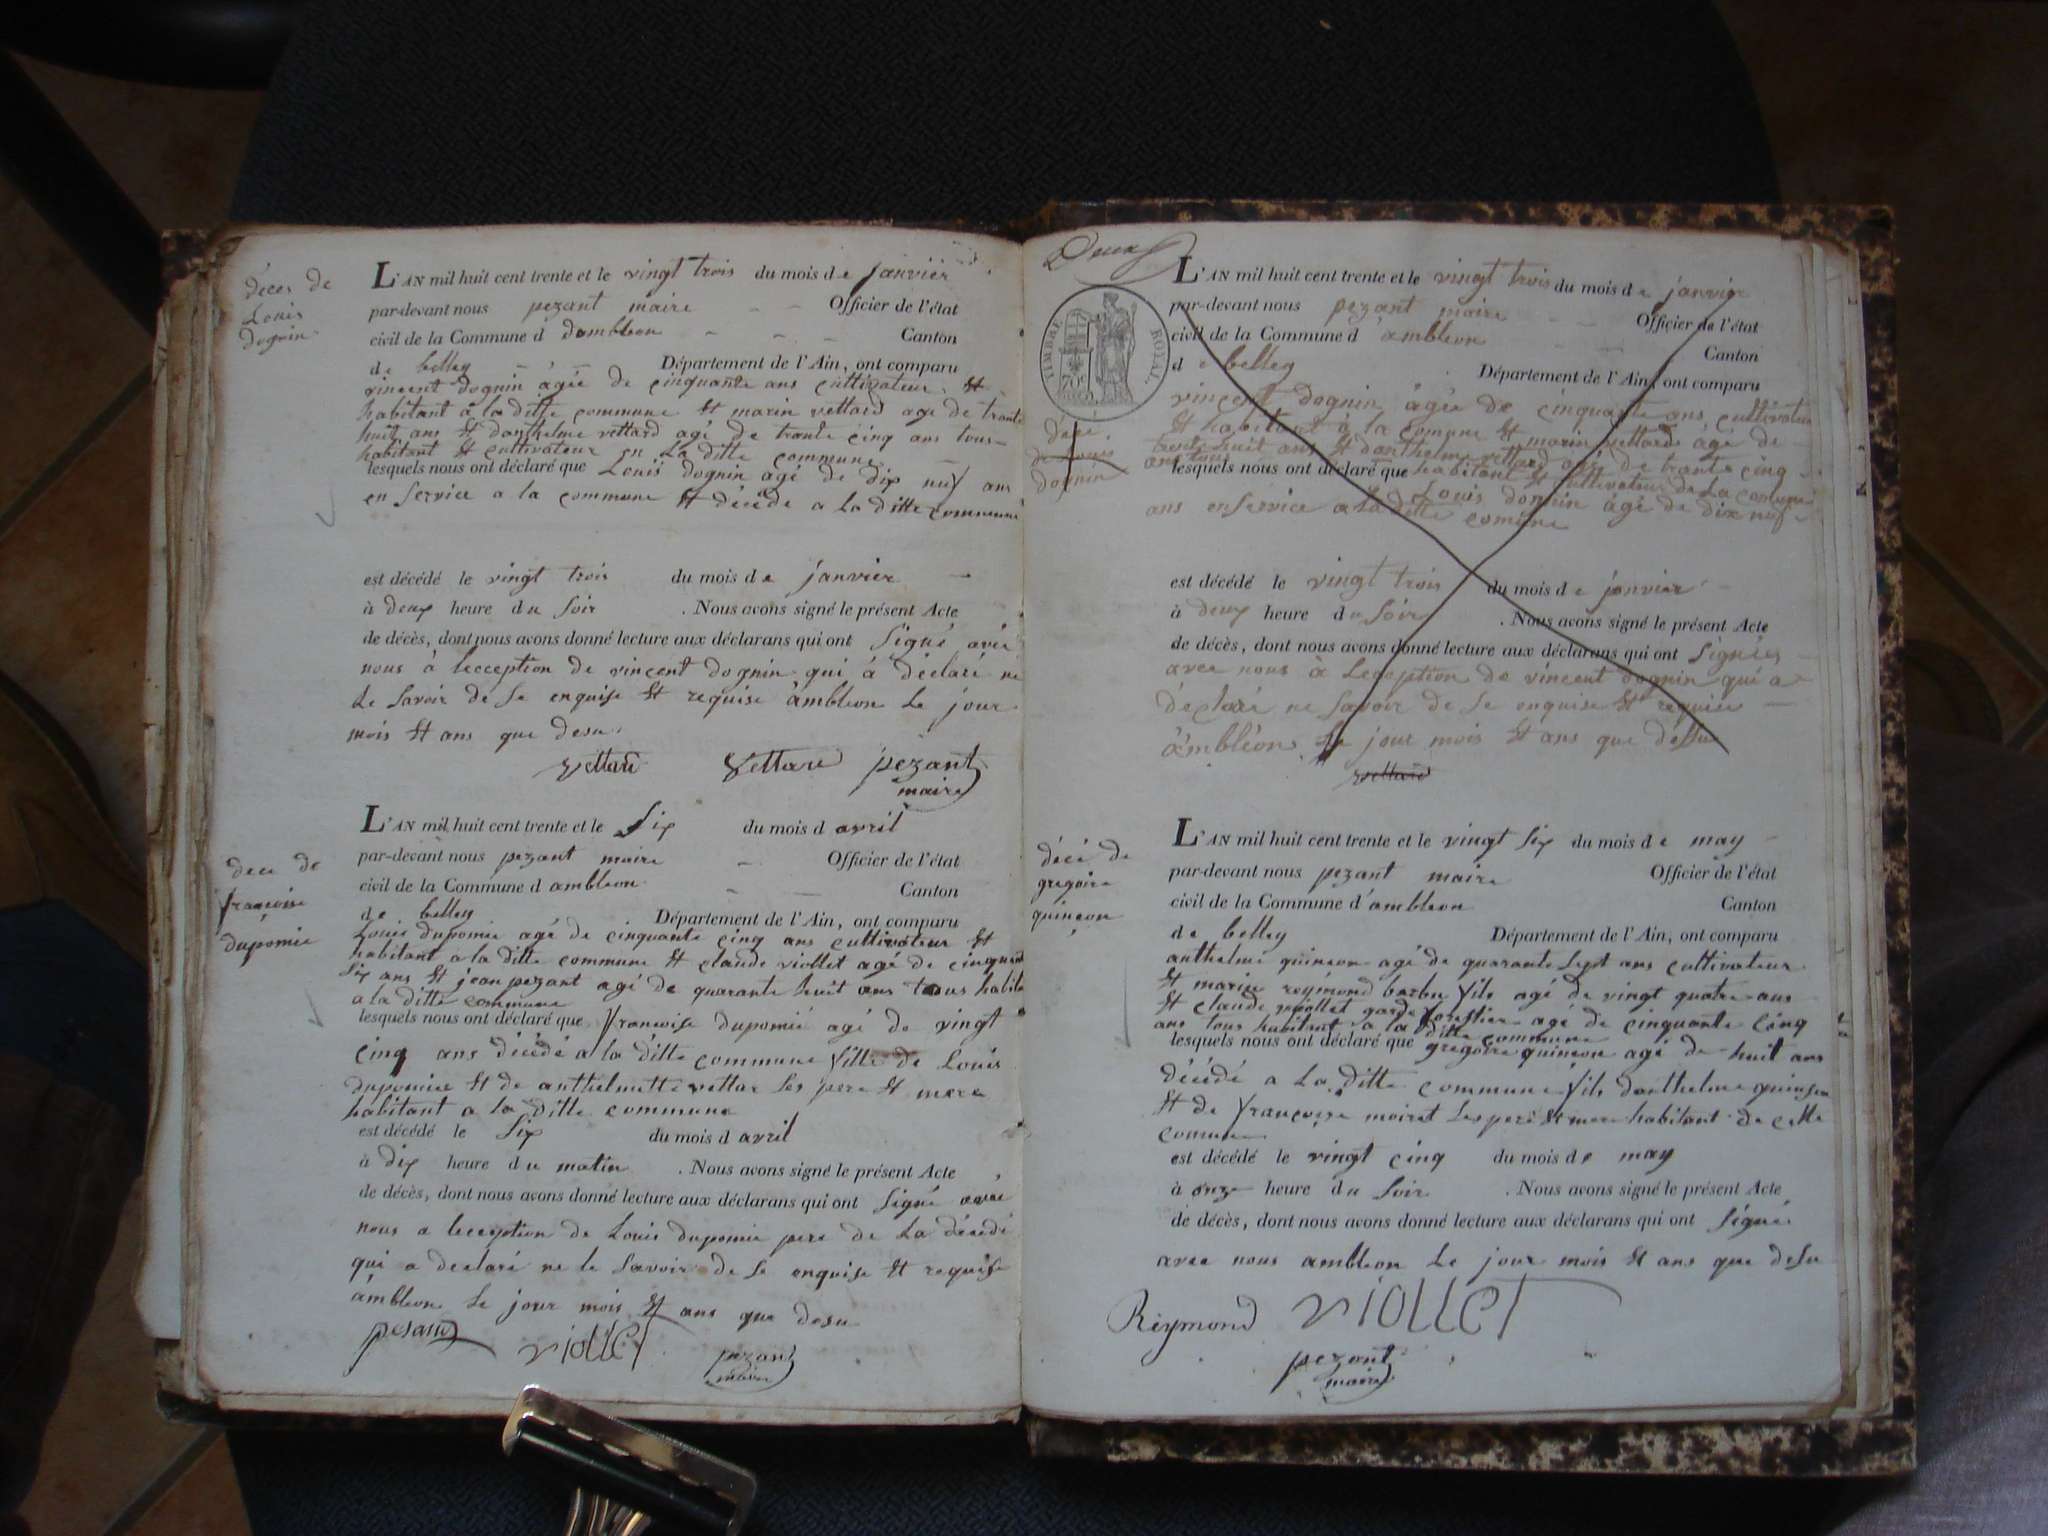 déces de
Louis
dognin
L'AN mil huit cent trente et le vingt trois du mois de janvier
par-devant nous pezant maire Officier de l'état
civil de la Commune d dambleon Canton
de belley Département de l'Ain, ont comparu
vincent dognin âgée de cinquante ans cultivateur et
habitant à la ditte commune et marin vettard age de trante
huit ans et danthelme vettard agé de trante cinq ans tous
habitant et cultivateur en La ditte commune
lesquels nous ont déclaré que Louis dognin agé de dix nuf ans
en service a la commune et décéde a la ditte commune
est décédé le vingt trois du mois de janvier
à deux heure du soir . Nous avons signé le présent Acte
de décès, dont nous avons donné lecture aux déclarans qui ont signé avec
nous à lecception de vincent dognin qui á déclaré ne
Le savoir de se enquise et requise âmbleon Le jour
mois et ans que desu
vettard vettard pezant
maire
dece de
francoise
dupomié
L'AN mil huit cent trente et le six du mois d avril
par-devant nous pezant maire Officier de l'état
civil de la Commune d ambleon Canton
de belley Département de l'Ain, ont comparu
Louis dupomié agé de cinquante cinq ans cultivateur et
habitant a la ditte commune et claude viollet agé de cinquant
six ans et jean pezant agé de quarante huit ans tous habita
a la ditte commune
lesquels nous ont déclaré que francoise dupomié agé de vingt
cinq ans décédé a la ditte commune fille de Louis
dupomiee et de anthelmette vettar ses pere et mere
habitant a la ditte commune
est décédé le six du mois d avril
à dix heure du matin . Nous avons signé le présent Acte
de décès, dont nous avons donné lecture aux déclarans qui ont signé avec
nous a lecception de Louis dupomie pere de La décédé
qui a declaré ne le savoir de se enquise et requise
âmbleon Le jour mois et ans que desu
pesant viollet pezant
maire
Deux
TIMBRE ROYAL
L'AN mil huit cent trente et le vingt trois du mois de janvier
par-devant nous pezant maire Officier de l'état
civil de la Commune d'ambleon Canton
de belley Département de l'Ain, ont comparu
vincent dognin âgée de cinquante ans cultivateur
et habitant à la comune et marin vettard âge de
trante huit ans et danthelme vettard agé de trante cinq
ans tous
lesquels nous ont déclaré que habitant et cultivateur de La comune
Louis dognin âgé de dix nuf
ans en service a la ditte comune
déce
de Louis
dognin
est décédé le vingt trois du mois de janvier
à deux heure du soir . Nous avons signé le présent Acte
de décès, dont nous avons donné lecture aux déclarans qui ont signées
avec nous à Leception de vincent dognin qui a
déclaré ne savoir de se enquise et requise
âmbléon Le jour mois et ans que dessu
vettard
décé de
gregoire
quinson
L'AN mil huit cent trente et le vingt six du mois de may
par-devant nous pezant maire Officier de l'état
civil de la Commune d'ambleon Canton
de belley Département de l'Ain, ont comparu
anthelme quinson agé de quarante sept ans cultivateur
et marin réymond barbu fils agé de vingt quatre ans
et claude viollet garde forestier agé de cinquante cinq
ans tous habitant a la ditte commune
lesquels nous ont déclaré que gregoire quinson agé de huit ans
décédé a La ditte commune fils danthelme quinson
et de francoise moiret Les pere et mere habitant de cette
comune
est décédé le vingt cinq du mois de may
à onze heure du soir . Nous avons signé le présent Acte
de décès, dont nous avons donné lecture aux déclarans qui ont signée
avec nous ambleon Le jour mois et ans que desu
Réymond viollet
pezant
maire